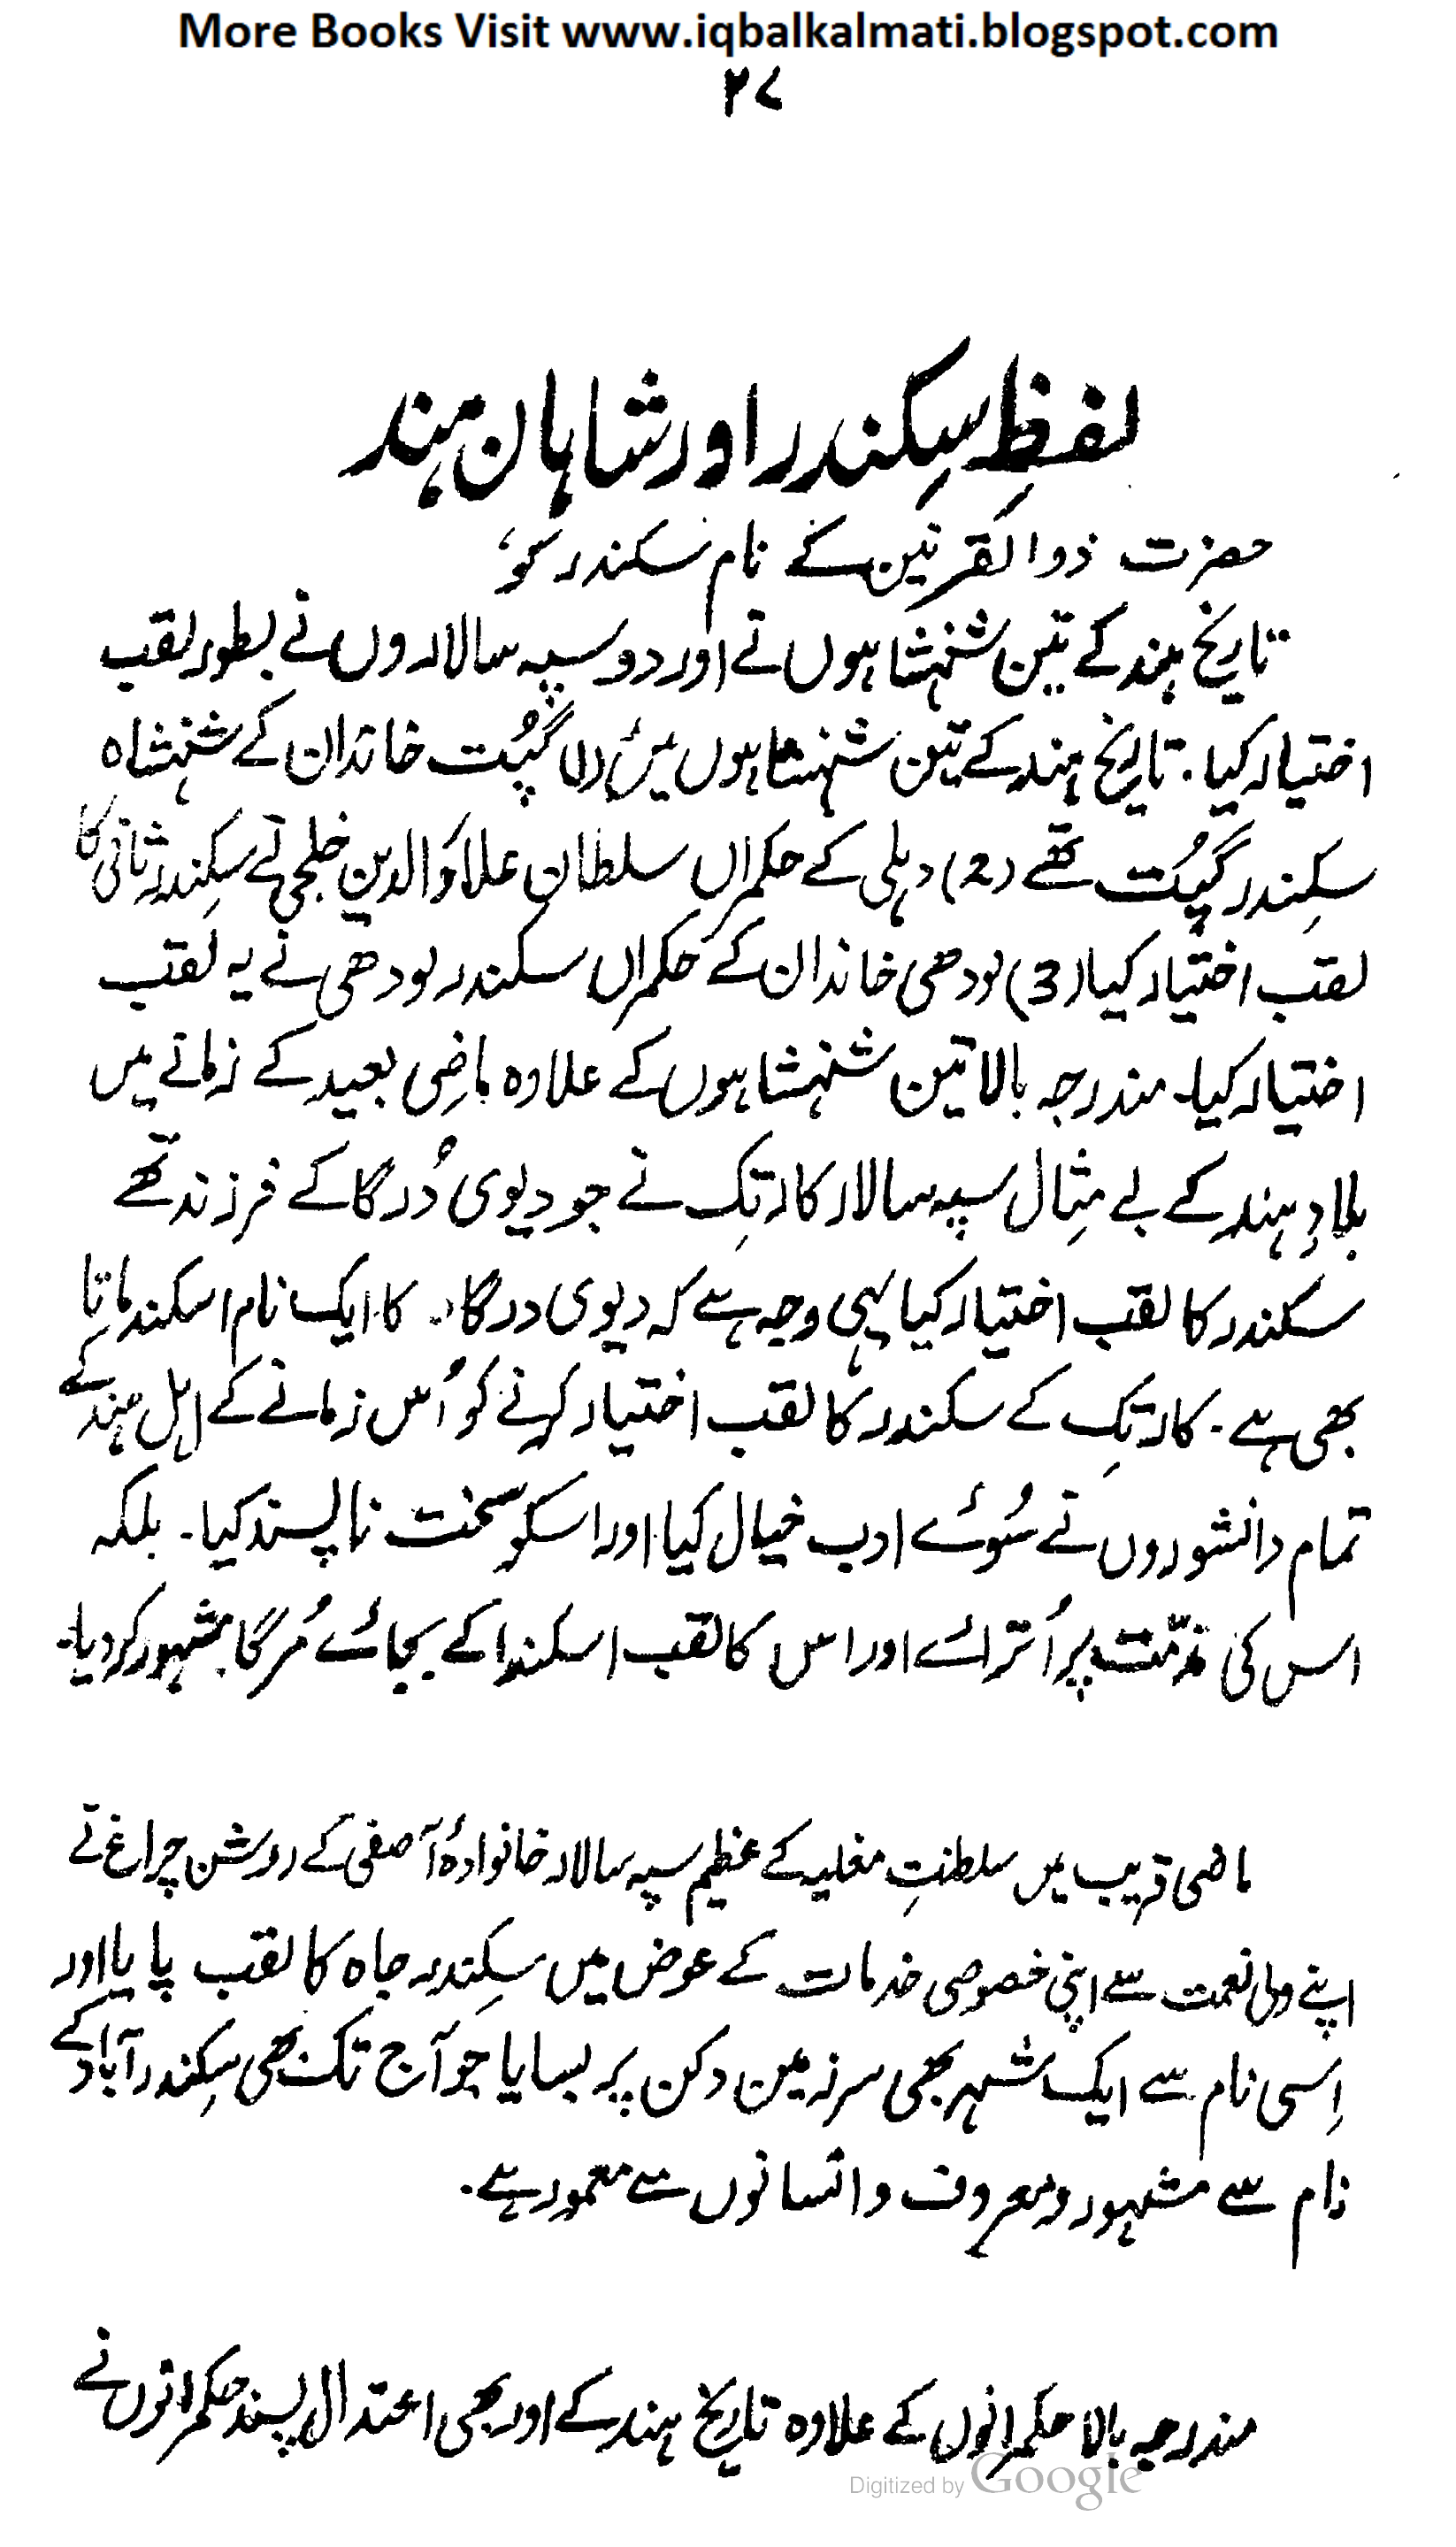 More Books Visit www.iqbalkalmati.blogspot.com
۲۷
لفظِ سِکندر اور شاہان ہند
حضرت ذوالقرنین کے نام سکندر کو،
تاریخ ہند کے تین شہنشاہوں نے اور دو سپہ سالاروں نے بطور لقب
اختیار کیا. تاریخ ہند کے تین شہنشاہوں میں (1) گپُت خاندان کے شہنشاہ
سکِندر گپُت تھے (2) دہلی کے حکمراں سلطان علاؤالدین خلجی نے سکِندر ثانی کا
لقب اختیار کیا (3) لودھی خاندان کے حکمراں سکندر لودھی نے یہ لقب
اختیار کیا۔ مندرجہ بالا تین شہنشاہوں کے علاوہ ماضِی بعید کے زمانے میں
بلادِ ہند کے بے مِثال سپہ سالار کارتِک نے جو دیوی دُرگا کے فرزند تھے
سکندر کا لقب اختیار کیا یہی وجہ ہے کہ دیوی درگاہ کا ایک نام اسکندماتا
بھی ہے۔ کارتِک کے سکندر کا لقب اختیار کرنے کو اُس زمانے کے اہل ہند کے
تمام دانشوروں نے سُوئے ادب خیال کیا اور اسکو سخت ناپسند کیا۔ بلکہ
اس کی مذمّت پر اُتر ائے اور اس کا لقب اسکندا کے بجائے مُرگا مشہور کر دیا۔
ماضی قریب میں سلطنتِ مغلیہ کے عظیم سپہ سالار خانوادۂ آصفی کے روشن چراغ نے
اپنے ولی نعمت سے اپنی خصوصی خدمات کے عوض میں سکِندر جاہ کا لقب پایا اور
اِسی نام سے ایک شہر بھی سرزمین دکن پر بسایا جو آج تک بھی سکِندر آباد کے
نام سے مشہور و معروف و انسانوں سے معمور ہے.
مندرجہ بالا حکمرانوں کے علاوہ تاریخ ہند کے اور بھی اعتدال پسند حکمرانوں نے
Digitized by Google